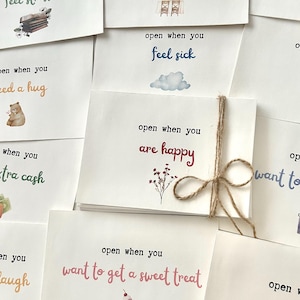 open when you
feel sick
open when you
need a hug
open when you
are happy
you
extra cash
open when you
want to
open when you
want to get a sweet treat
laugh
open when you